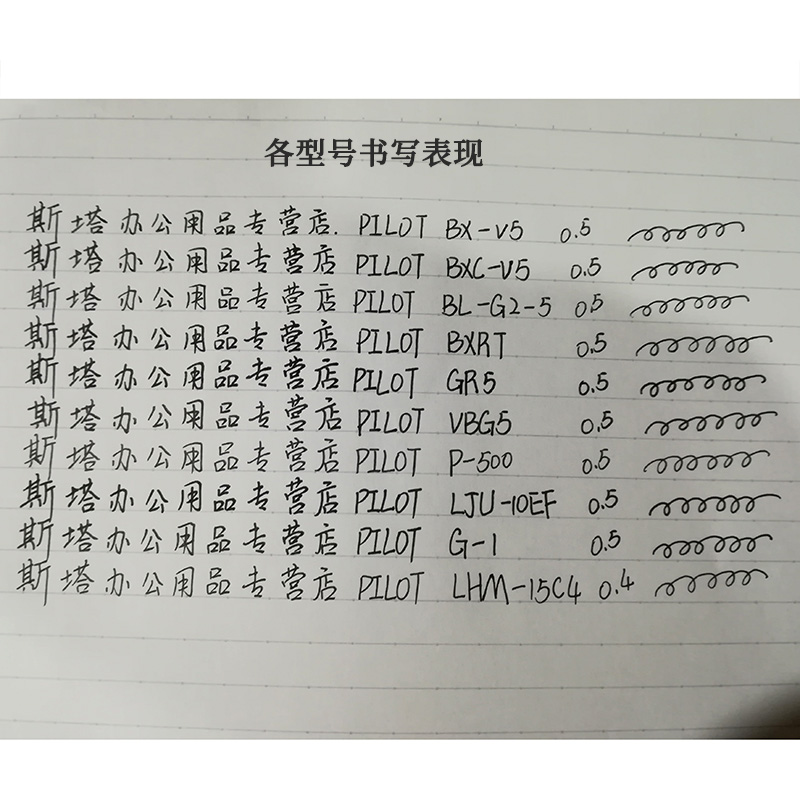 各型号书写表现
斯塔办公用品专营店. PILOT BX-V5 0.5
斯塔办公用品专营店 PILOT BXC-V5 0.5
斯塔办公用品专营店 PILOT BL-G2-5 0.5
斯塔办公用品专营店 PILOT BXRT 0.5
斯塔办公用品专营店 PILOT GR5 0.5
斯塔办公用品专营店 PILOT VBG5 0.5
斯塔办公用品专营店 PILOT P-500 0.5
斯塔办公用品专营店 PILOT LJU-10EF 0.5
斯塔办公用品专营店 PILOT G-1 0.5
斯塔办公用品专营店 PILOT LHM-15C4 0.4